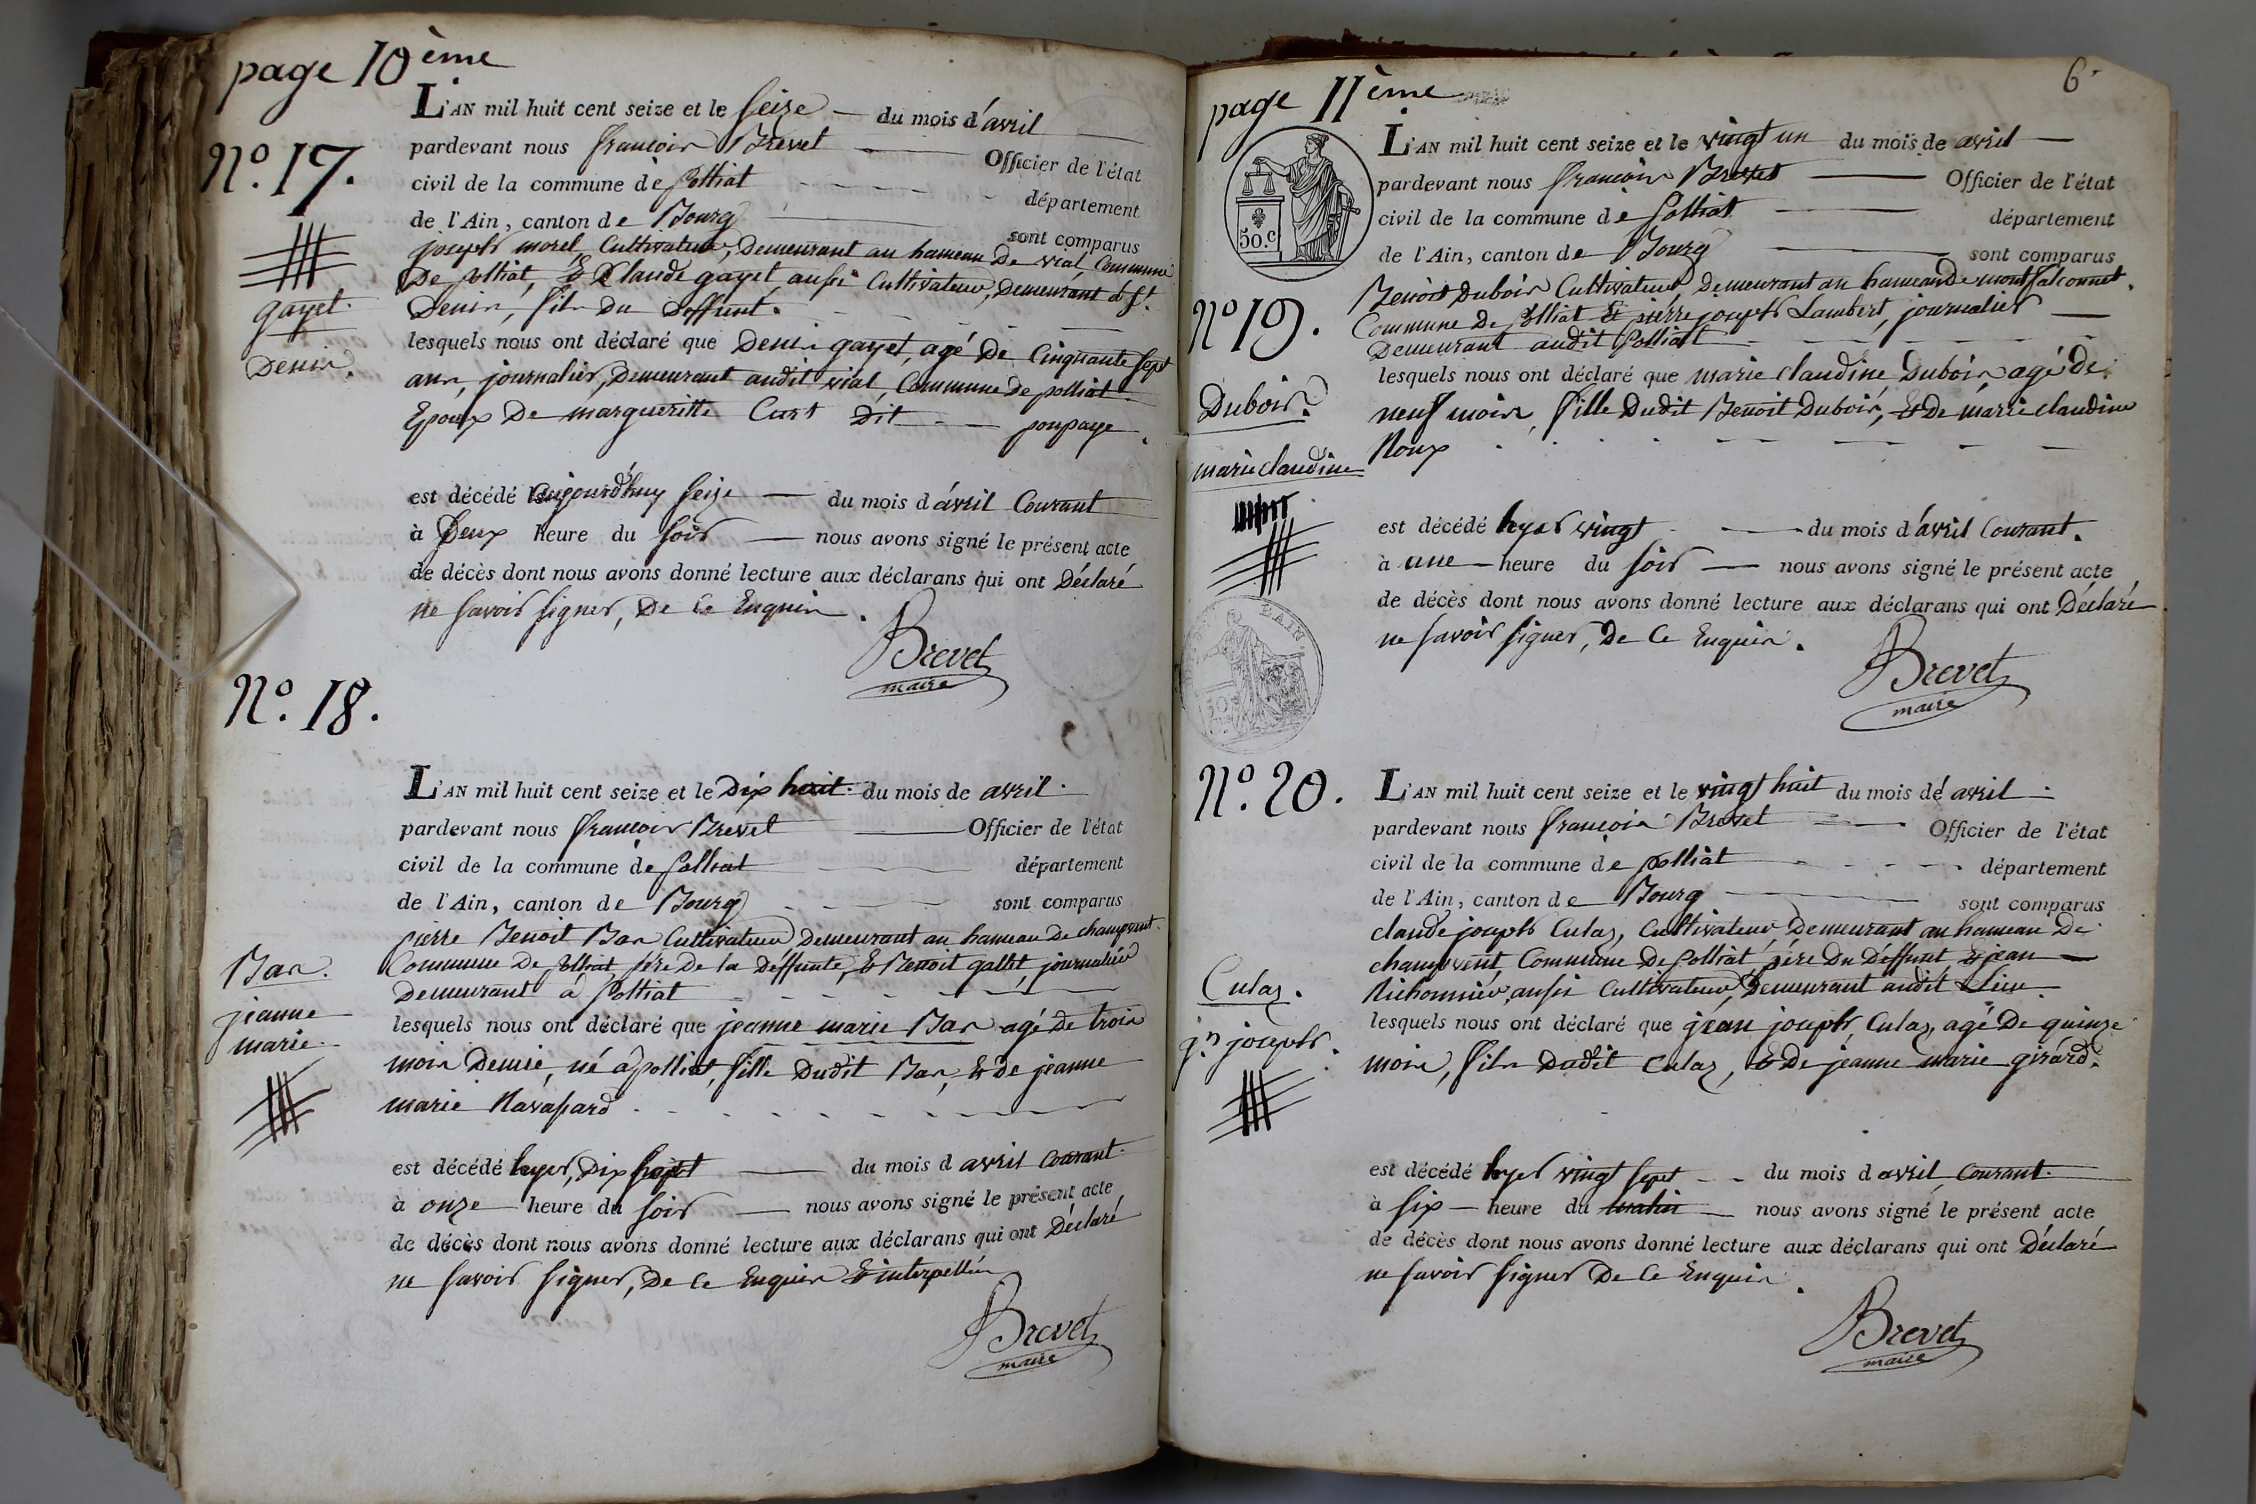 page 10ème
L'AN mil huit cent seize et le seize du mois d'avril
N.º 17.
pardevant nous françois Brevet Officier de l'état
civil de la commune de Polliat département
de l'Ain, canton de Bourg sont comparus
joseph morel Cultivateur, Demeurant au hameau De vial, Commune
De Polliat, & Claude gayet, aussi Cultivateur, Demeurant à St.
gayet.
Denis, fils du deffunt.
Denis.
lesquels nous ont déclaré que Denis gayet, agé De Cinquante sept
ans, journalier, Demeurant audit vial, Commune De polliat
Epoux De margueritte Curt Dit poupaye.
est décédé aujourd'huy seize du mois d'avril Courant
à Deux heure du soir nous avons signé le présent acte
de décès dont nous avons donné lecture aux déclarans qui ont Déclaré
ne savoir signer, De Ce Enquis.
Brevet
maire
N.º 18.
L'AN mil huit cent seize et le Dix huit du mois de avril.
pardevant nous françois Brevet Officier de l'état
civil de la commune de Polliat département
de l'Ain, canton de Bourg sont comparus
pierre Benoit Bas Cultivateur Demeurant au hameau De champvent
Bas.
Commune De Polliat père De la Deffunte, & Benoit gallet, journalier
Demeurant à Polliat
jeanne
marie
lesquels nous ont déclaré que jeanne marie Bas agé de trois
mois Demie, né à polliat, fille Dudit Bas, & De jeanne
marie Navassard
est décédé hyer, Dix sept du mois d avril Courant.
à onze heure du soir nous avons signé le présent acte
de décès dont nous avons donné lecture aux déclarans qui ont Déclaré
ne savoir signer, De Ce Enquis & interpellés
Brevet
maire
6.
page 11ème
50.c
L'AN mil huit cent seize et le vingt un du mois de avril
pardevant nous françois Brevet Officier de l'état
civil de la commune de Polliat département
de l'Ain, canton de Bourg sont comparus
Benoit Dubois Cultivateur Demeurant au hameau De montfalconnet.
N.º 19.
Commune De Polliat & pierre joseph Lambert, journalier
Demeurant audit Polliat
lesquels nous ont déclaré que marie claudine Dubois agé de
Dubois.
neuf mois, fille Dudit Benoit Dubois, & De marie claudine
Roux
marie claudine
est décédé hyer vingt du mois d'avril Courant.
à une heure du soir nous avons signé le présent acte
de décès dont nous avons donné lecture aux déclarans qui ont Déclaré
AIN.
ne savoir signer, De Ce Enquis.
Brevet
maire
N.º 20.
L'AN mil huit cent seize et le vingt huit du mois de avril.
pardevant nous françois Brevet Officier de l'état
civil de la commune de polliat département
de l'Ain, canton de Bourg sont comparus
claude joseph Culaz, Cultivateur Demeurant au hameau De
champvent, Commune De Polliat père Du Deffunt & jean
Culaz.
Richonnier, aussi Cultivateur, Demeurant audit Lieu.
lesquels nous ont déclaré que jean joseph Culaz, agé De quinze
j.n joseph.
mois, fils Dudit Culaz, & De jeanne marie girard.
est décédé hyer vingt sept du mois d avril Courant.
à six heure du matin nous avons signé le présent acte
de décès dont nous avons donné lecture aux déclarans qui ont Déclaré
ne savoir signer De Ce Enquis.
Brevet
maire